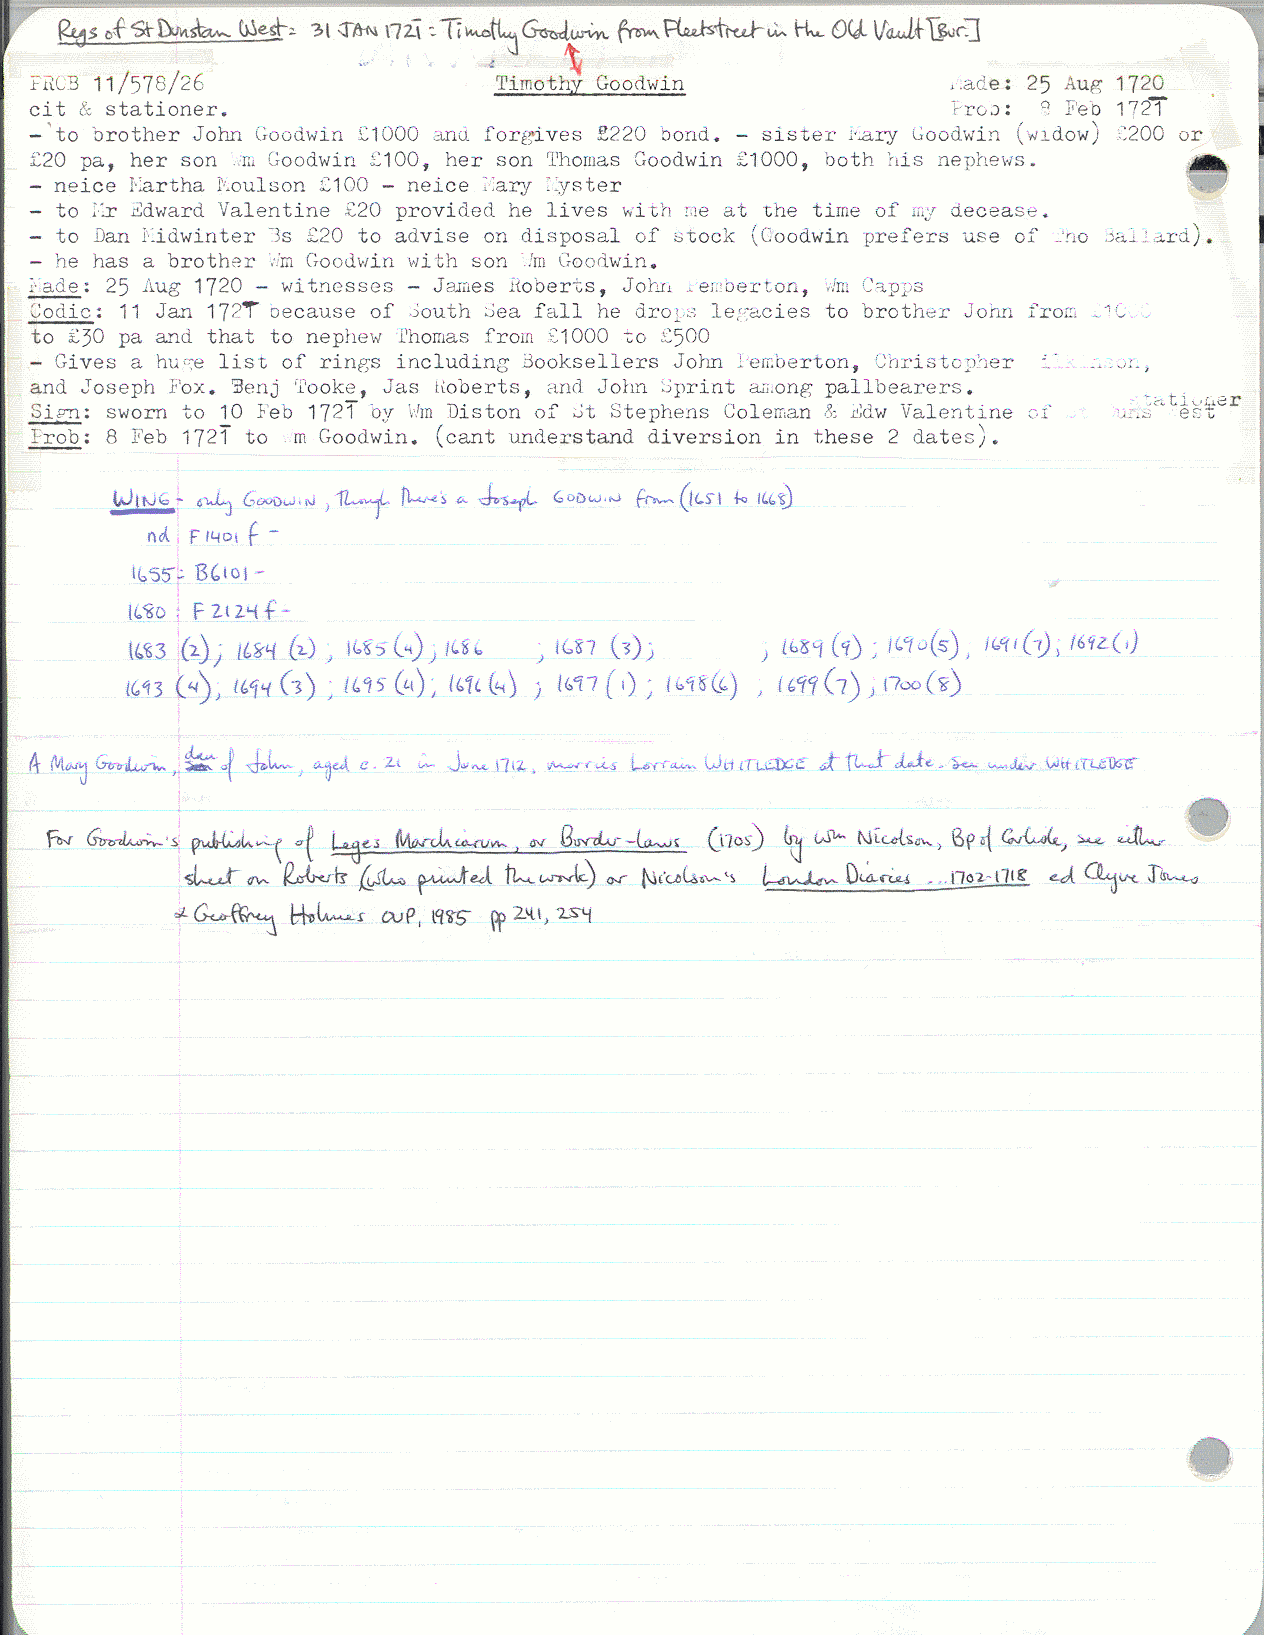 Regs of St Dunstan West = 31 JAN 1721̅ = Timothy Goodwin from Fleetstreet in the Old Vault [Bur.]
PROB 11/578/26 Timothy Goodwin Made: 25 Aug 1720
cit & stationer. Prob: 8 Feb 1721̅
- to brother John Goodwin £1000 and forgives £220 bond. - sister Mary Goodwin (widow) £200 or
£20 pa, her son Wm Goodwin £100, her son Thomas Goodwin £1000, both his nephews.
- neice Martha Moulson £100 - neice Mary Myster
- to Mr Edward Valentine £20 provided he lives with me at the time of my decease.
- to Dan Midwinter Bs £20 to advise on disposal of stock (Goodwin prefers use of Tho Ballard).
- he has a brother Wm Goodwin with son Wm Goodwin.
Made: 25 Aug 1720 - witnesses - James Roberts, John Pemberton, Wm Capps
Codic: 11 Jan 1721̅ because of South Sea fall he drops legacies to brother John from £1000
to £30 pa and that to nephew Thomas from £1000 to £500
- Gives a huge list of rings including Booksellers John Pemberton, Christopher
and Joseph Fox. Benj Tooke, Jas Roberts, and John Sprint among pallbearers.
stationer
Sign: sworn to 10 Feb 1721̅ by Wm Diston of St Stephens Coleman & Edw Valentine of St Duns West
Prob: 8 Feb 1721̅ to Wm Goodwin. (cant understand diversion in these 2 dates).
WING - only GOODWIN, though there's a Joseph GODWIN from (1651 to 1668)
nd F1401 f -
1655: B6101 -
1680: F2124f -
1683 (2); 1684 (2); 1685 (4); 1686 ; 1687 (3); ; 1689 (9); 1690 (5), 1691 (7); 1692 (1)
1693 (4); 1694 (3); 1695 (4); 1696 (4) ; 1697 (1); 1698 (6) , 1699 (7); 1700 (8)
A Mary Goodwin, dau of John, aged c. 21 in June 1712, marries Lorrain WHITLEDGE at that date. See under WHITLEDGE
For Goodwin's publishing of Leges Marchiarum, or Border-Laws (1705) by Wm Nicolson, Bp of Carlisle, see either
sheet on Roberts (who printed the work) or Nicolson's London Diaries ... 1702-1718 ed Clyve Jones
& Geoffrey Holmes OUP, 1985 pp 241, 254